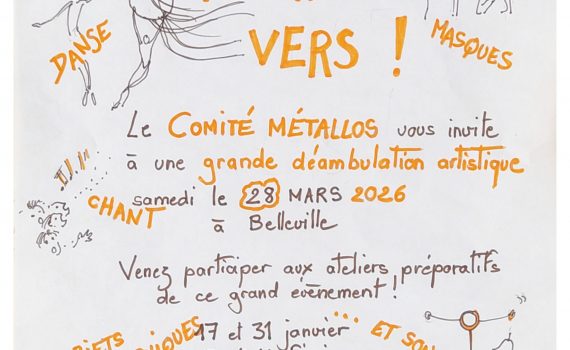 DANSE
VERS !
MASQUES
Le COMITÉ MÉTALLOS vous invite
à une grande déambulation artistique
samedi le 28 MARS 2026
CHANT
à Belleville
Venez participer aux ateliers préparatifs
de ce grand évènement !
17 et 31 janvier
... ET SON